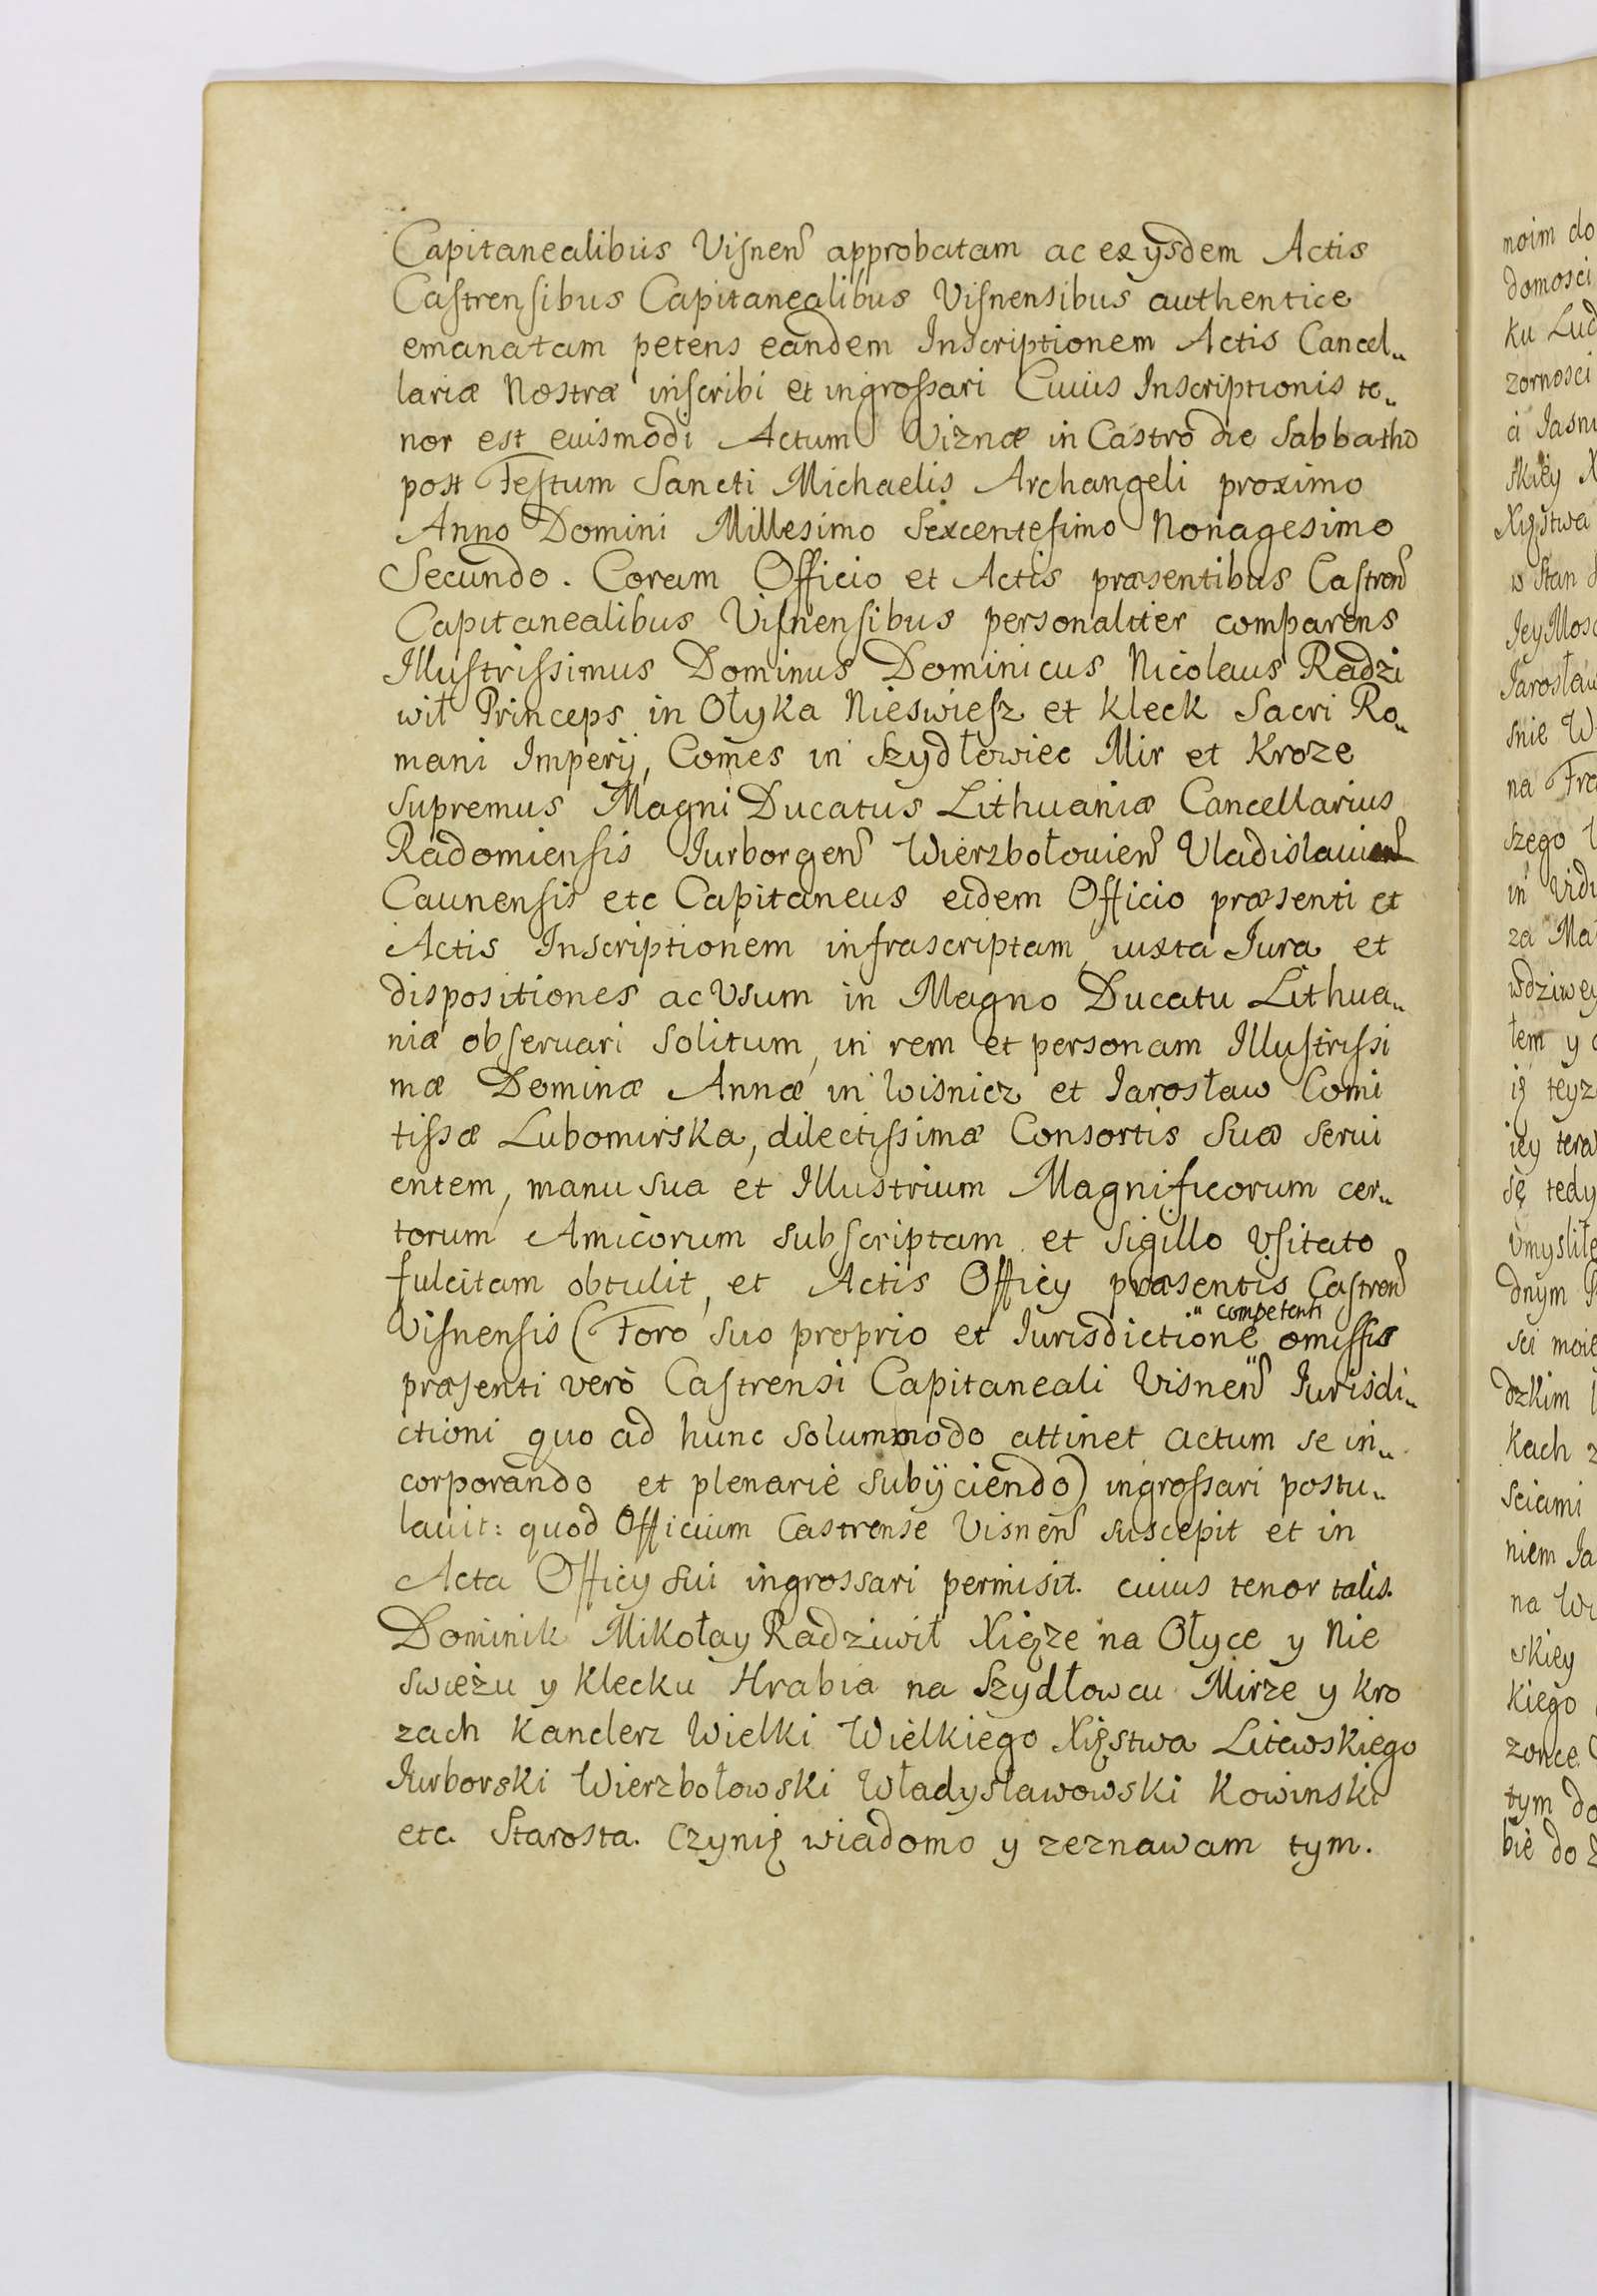 Capitanealibus Visnen approbatam ac ex ijsdem Actis
Castrensibus Capitanealibus Visnensibus authentice
emanatam petens eandem Inscriptionem Actis Cancel„
lariæ Nostræ inscribi et ingrossari Cuius Inscriptionis te„
nor est euismodi Actum Viznæ in Castro die Sabbatho
post Festum Sancti Michaelis Archangeli proximo
Anno Domini Millesimo Sexcentesimo Nonagesimo
Secundo. Coram Officio et Actis præsentibus Castren
Capitanealibus Visnensibus personaliter comparens
Illustrissimus Dominus Dominicus Nicolaus Radzi
wił Princeps in Ołyka Nieswiesz et Kleck Sacri Ro„
mani Imperij, Comes in Szydłowiec Mir et Kroze
Supremus Magni Ducatus Lithuaniæ Cancellarius
Radomiensis Iurborgen Wierzbołouien Vladislauien
Caunensis etc Capitaneus eidem Officio præsenti et
Actis Inscriptionem infrascriptam, iuxta Iura et
dispositiones ac Vsum in Magno Ducatu Lithua„
niæ obseruari Solitum, in rem et personam Illustrissi
mæ Dominæ Annæ in Wisnicz et Iarosław Comi
tissæ Lubomirska, dilectissimæ Consortis Suæ Serui
entem, manu sua et Illustrium Magnificorum cer„
torum Amicorum subscriptam et Sigillo Vsitato
fulcitam obtulit, et Actis Officÿ præsentis Castren
Visnensis (Foro Suo proprio et Iurisdictione „competenti omissis
præsenti verò Castrensi Capitaneali Visnen Iurisdi„
ctioni quo ad hunc solummodo attinet actum se in„
corporando et plenariè subijciendo) ingrossari postu„
lauit: quod Officium Castrense Visnen suscepit et in
Acta Officÿ sui ingrossari permisit. cuius tenor talis.
Dominik Mikołay Radziwił Xiąze na Ołyce y Nie
swieżu y Klecku Hrabia na Szydłowcu Mirze y Kro
zach Kanclerz Wielki Wielkiego Xięstwa Litewskiego
Iurborski Wierzbołowski Władysławowski Kowinski
etc. Starosta. Czynię wiadomo y zeznawam tym.